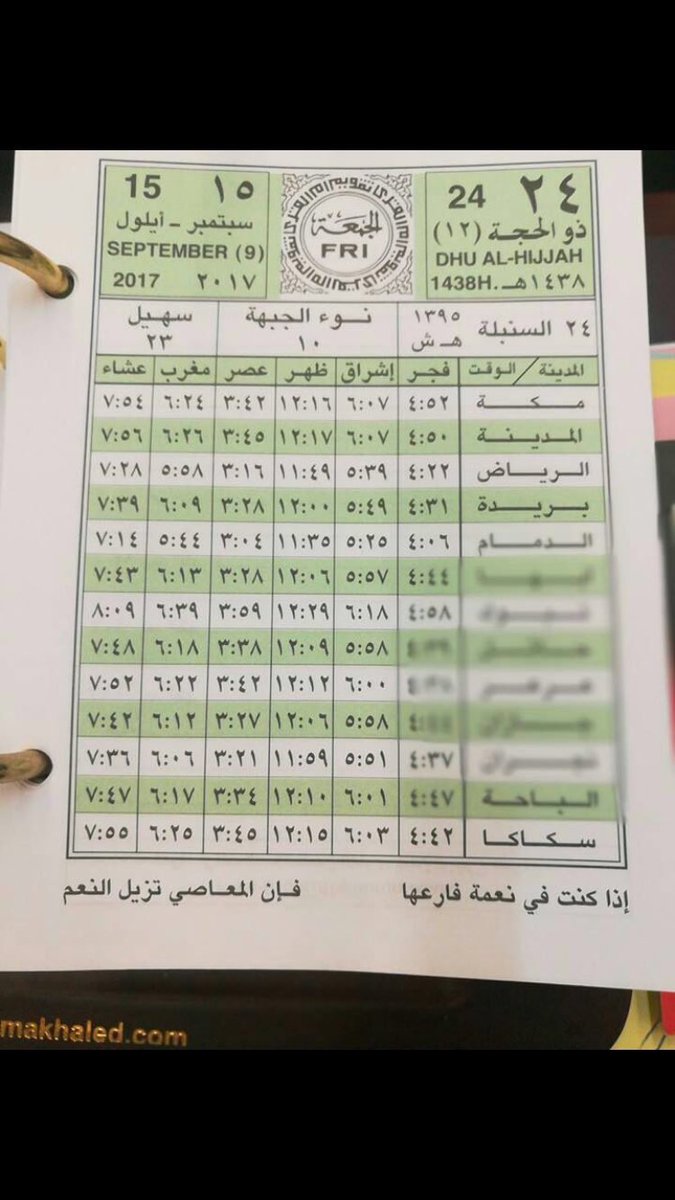 ٢٤ 24
ذو الحجة (١٢)
DHU AL-HIJJAH
1438H. ١٤٣٨هـ
الجمعة
FRI
١٥ 15
سبتمبر - أيلول
SEPTEMBER (9)
٢٠١٧ 2017
٢٤ السنبلة ١٣٩٥ هـ ش
نوء الجبهة ١٠
سهيل ٢٣
المدينة / الوقت فجر إشراق ظهر عصر مغرب عشاء
مكة ٤:٥٢ ٦:٠٧ ١٢:١٦ ٣:٤٢ ٦:٢٤ ٧:٥٤
المدينة ٤:٥٠ ٦:٠٧ ١٢:١٧ ٣:٤٥ ٦:٢٦ ٧:٥٦
الرياض ٤:٢٢ ٥:٣٩ ١١:٤٩ ٣:١٦ ٥:٥٨ ٧:٢٨
بريدة ٤:٣١ ٥:٤٩ ١٢:٠٠ ٣:٢٨ ٦:٠٩ ٧:٣٩
الدمام ٤:٠٦ ٥:٢٥ ١١:٣٥ ٣:٠٤ ٥:٤٤ ٧:١٤
٤:٤٤ ٥:٥٧ ١٢:٠٦ ٣:٢٨ ٦:١٣ ٧:٤٣
٤:٥٨ ٦:١٨ ١٢:٢٩ ٣:٥٩ ٦:٣٩ ٨:٠٩
٥:٥٨ ١٢:٠٩ ٣:٣٨ ٦:١٨ ٧:٤٨
٦:٠٠ ١٢:١٢ ٣:٤٢ ٦:٢٢ ٧:٥٢
٥:٥٨ ١٢:٠٦ ٣:٢٧ ٦:١٢ ٧:٤٢
٤:٣٧ ٥:٥١ ١١:٥٩ ٣:٢١ ٦:٠٦ ٧:٣٦
الباحة ٤:٤٧ ٦:٠١ ١٢:١٠ ٣:٣٤ ٦:١٧ ٧:٤٧
سكاكا ٤:٤٢ ٦:٠٣ ١٢:١٥ ٣:٤٥ ٦:٢٥ ٧:٥٥
إذا كنت في نعمة فارعها فإن المعاصي تزيل النعم
makhaled.com